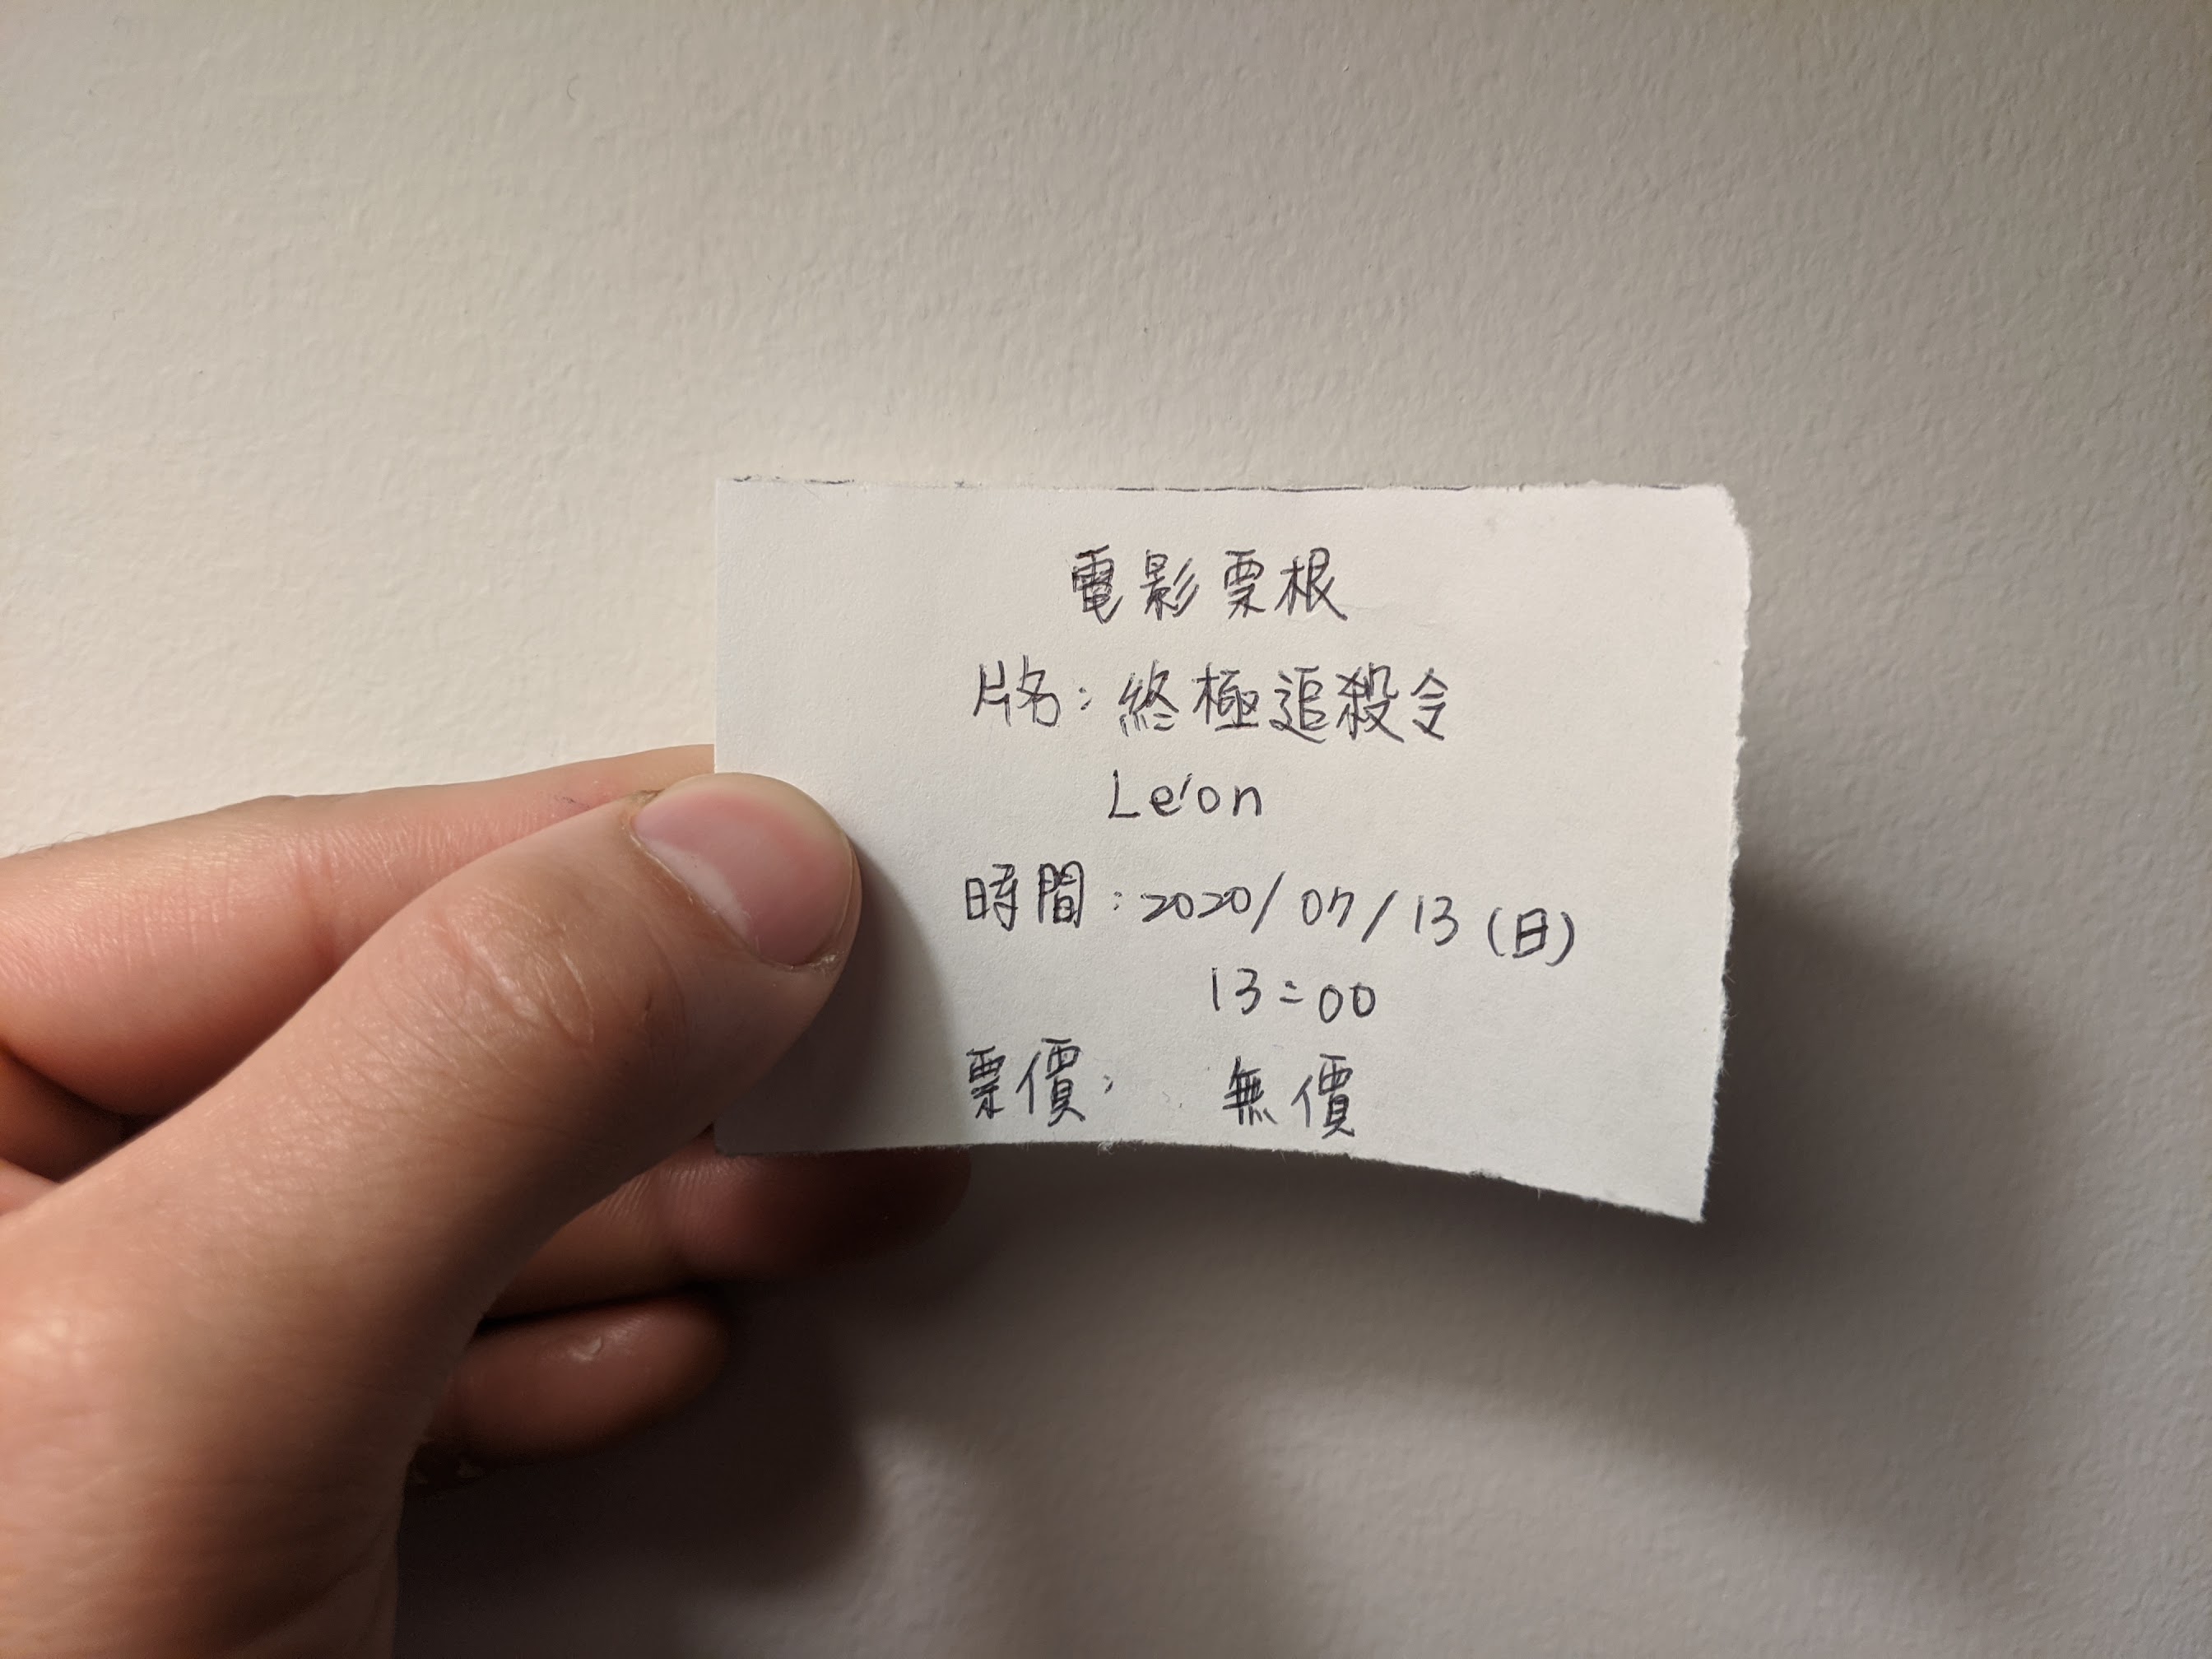 電影票根
片名：終極追殺令
Le'on
時間：2020/07/13 (日)
13:00
票價： 無價